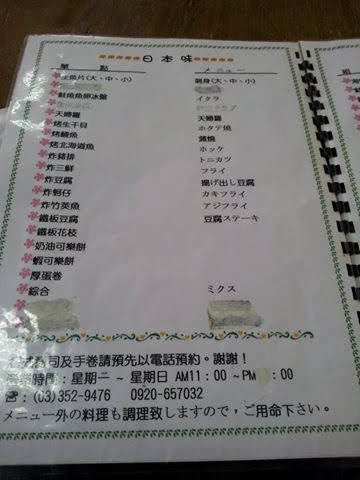 日本味
單 點 メニュー
生魚片(大、中、小) 刺身(大、中、小)
鮭魚魚卵冰盤 イクラ
天婦羅 天婦羅
烤生干貝 ホタテ燒
烤鰻魚 蒲燒
烤北海道魚 ホッケ
炸豬排 トニカツ
炸三鮮 フライ
炸豆腐 揚げ出し豆腐
炸蚵仔 カキフライ
炸竹莢魚 アジフライ
鐵板豆腐 豆腐ステーキ
鐵板花枝
奶油可樂餅
蝦可樂餅
厚蛋卷
綜合 ミクス
壽司及手卷請預先以電話預約。謝謝！
時間：星期二 ~ 星期日 AM11：00 ~PM ：00
☎：(03)352-9476 0920-657032
メニュー外の料理も調理致しますので，ご用命下さい。